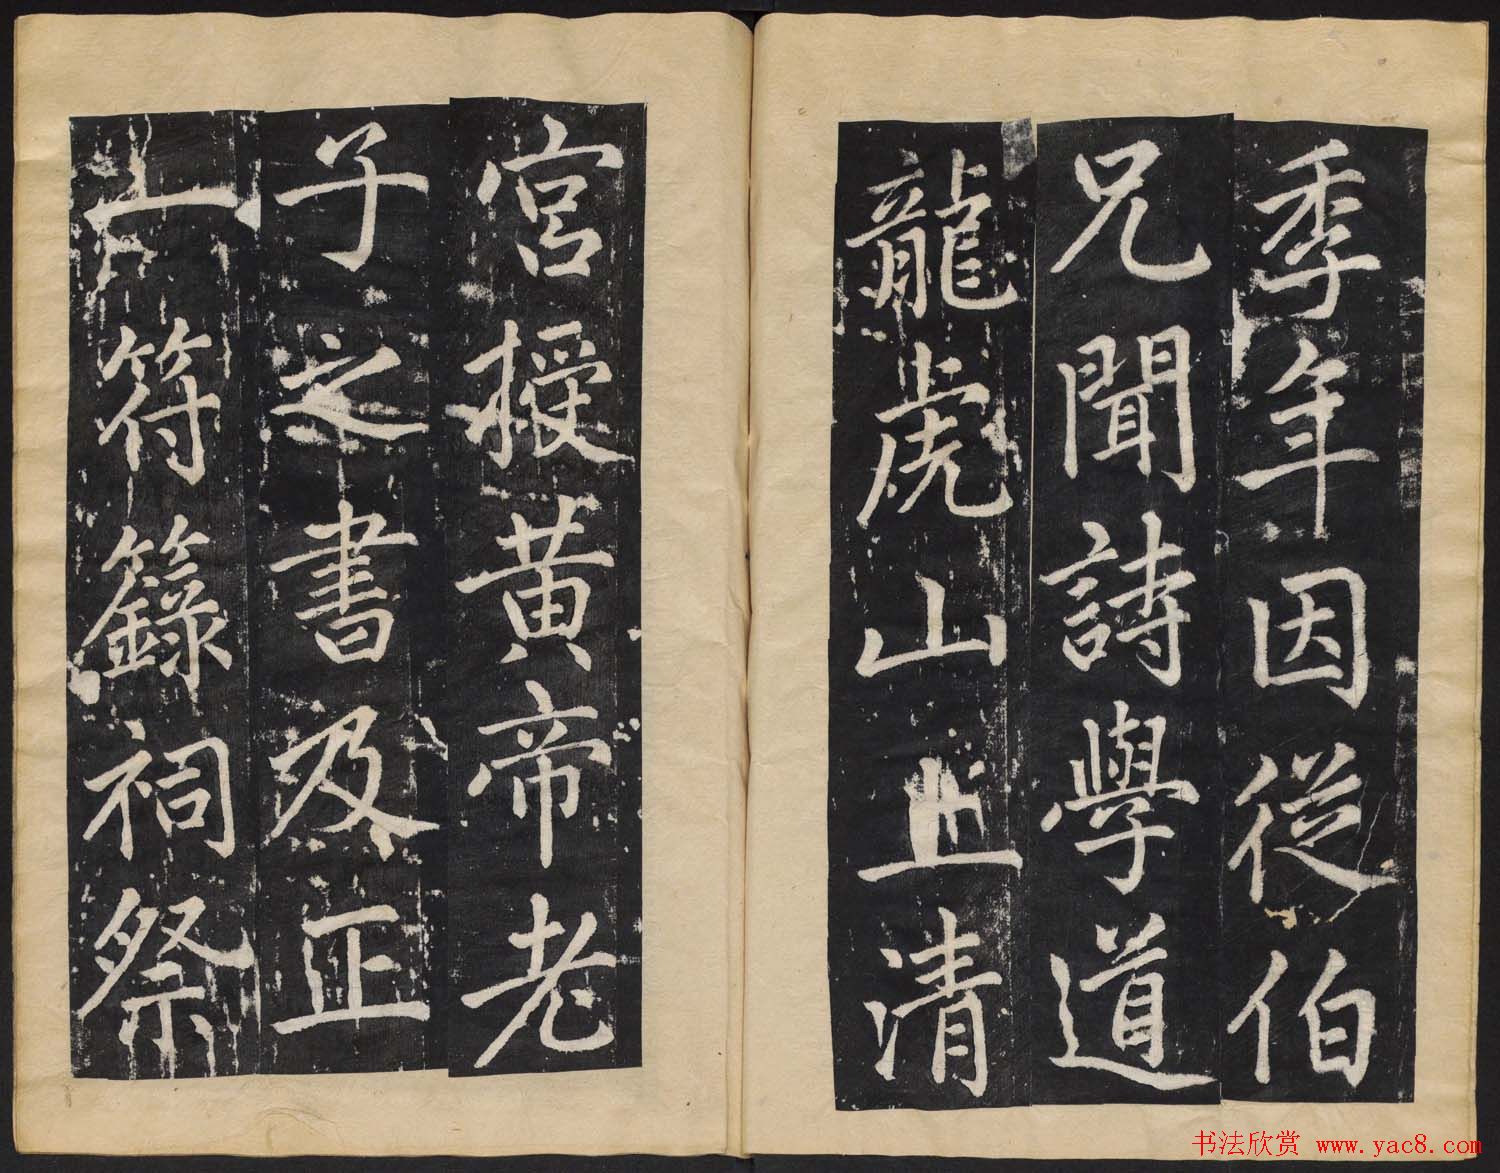 季年因從伯
兄聞詩學道
龍虎山上清
宮授黃帝老
子之書及正
一符籙祠祭
书法欣赏 www.yac8.com